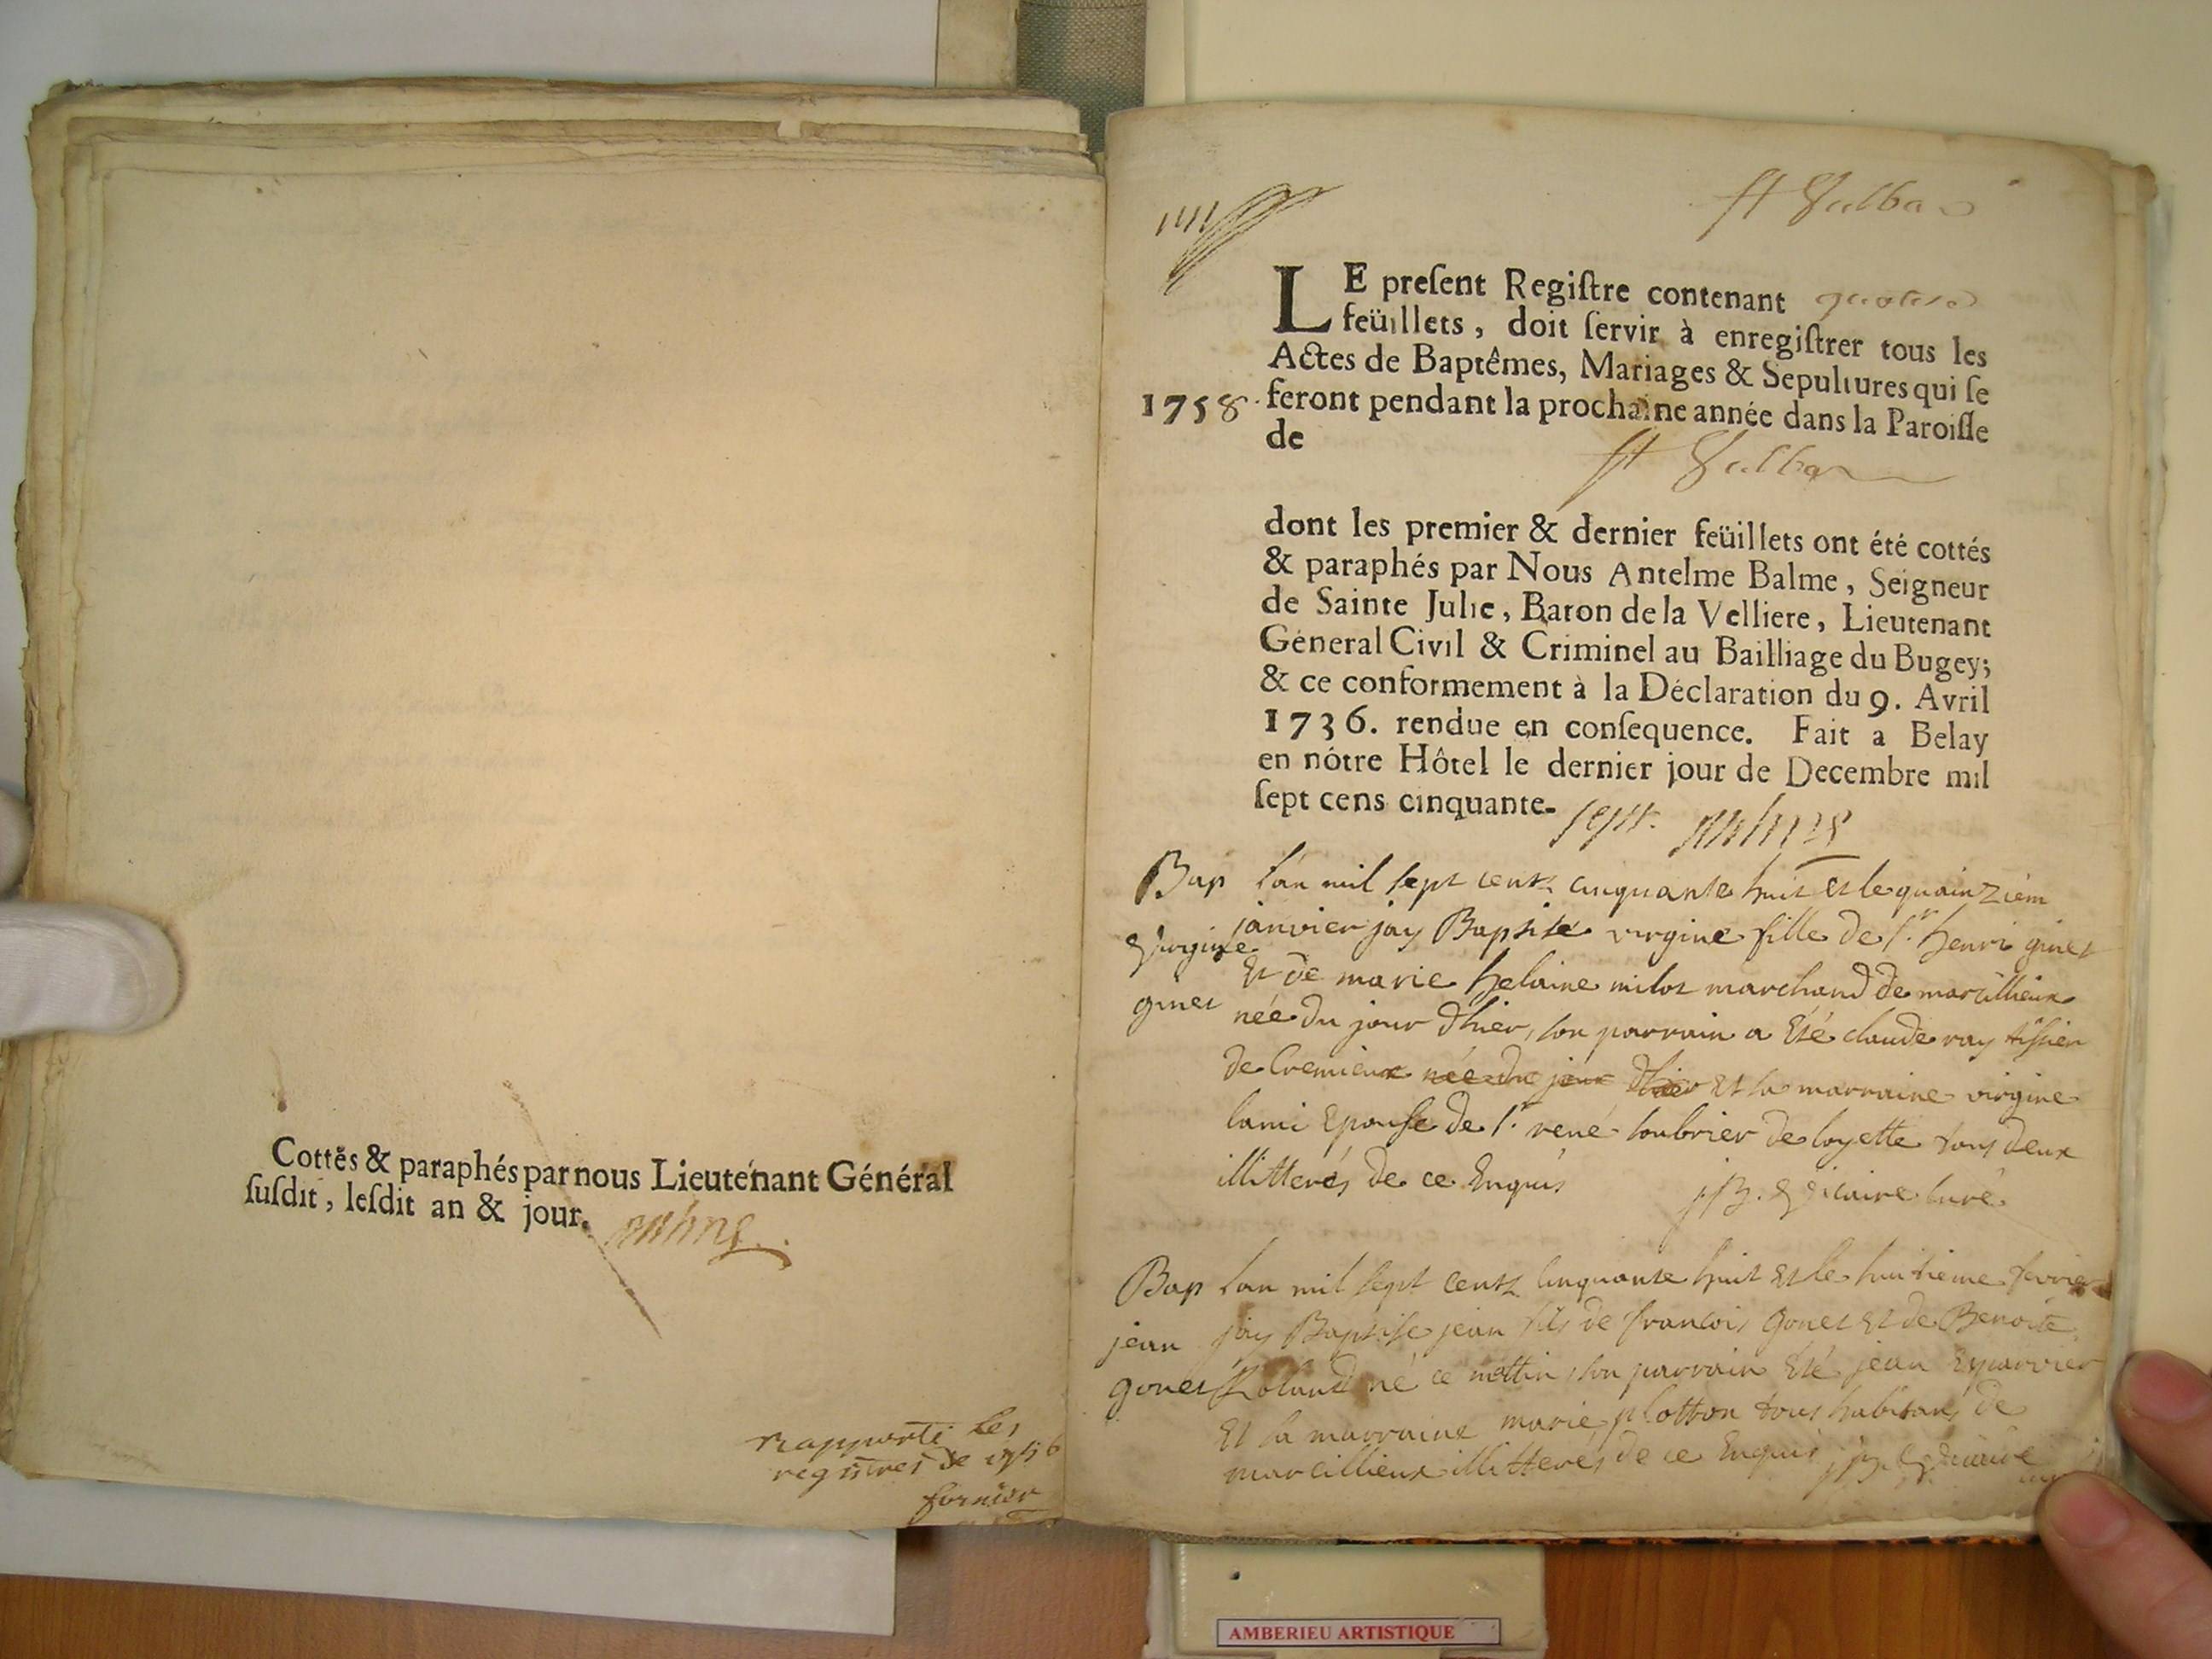 Cottés & paraphés par nous Lieutenant Général
suſdit, leſdit an & jour.
rapporté les
registres de 1756
fornier
1111
st Vulbas
LE preſent Regiſtre contenant quatre
feüillets, doit ſervir à enregiſtrer tous les
Actes de Baptêmes, Mariages & Sepultures qui ſe
1758. feront pendant la prochaine année dans la Paroiſſe
de
st Vulbas
dont les premier & dernier feüillets ont été cottés
& paraphés par Nous Antelme Balme, Seigneur
de Sainte Julie, Baron de la Velliere, Lieutenant
Géneral Civil & Criminel au Bailliage du Bugey;
& ce conformement à la Déclaration du 9. Avril
1736. rendue en conſequence. Fait a Belay
en nôtre Hôtel le dernier jour de Decembre mil
ſept cens cinquante-sept.
Bap l'an mil sept cents cinquante huit et le quainziém
janvier jay Baptisé virgine fille de sr. henri ginet
Virgine et de marie helaine milot marchand de marcillieux
ginet née du jour d'hier, son parrain a été claude ray tissier
de Cremieux née du jour d'hier et la marraine virgine
lami Epouse de sr. rené loubrier de loyette tous deux
illitterés de ce Enquis j B. Vicaire curé
Bap l'an mil sept cents cinquante huit et le huitieme fevrier
jean jay Baptisé jean fils de francois gonet et de Benoite
gonet Roland né ce mattin, son parrain été jean Eparvier
et la marraine marie plotton tous habitans de
marcillieux illitterés de ce Enquis j B. Vicaire curé
AMBERIEU ARTISTIQUE